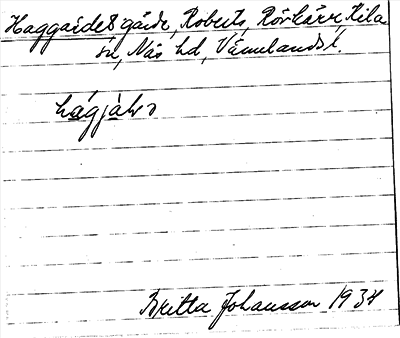 Haggärdet gärde, Roberts, Rörkärr, Kila
sn, Näs hd, Värmlands l.
hagjalo
Britta Johansson 1934